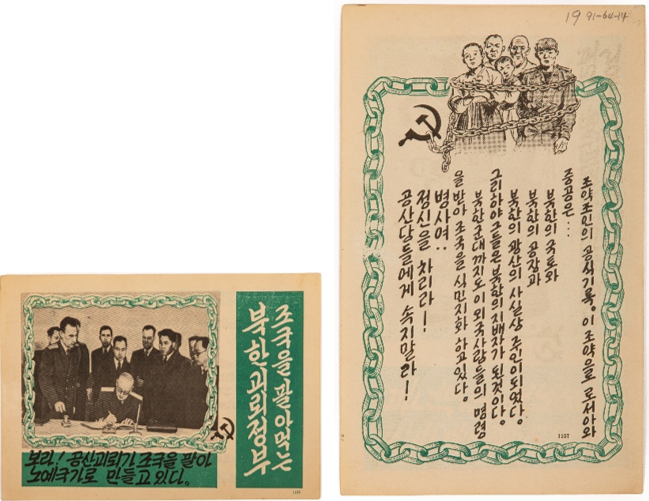 조국을 팔아먹는
북한괴뢰정부
보라! 공산괴뢰가 조국을 팔아
노예국가로 만들고 있다.
1157
19 91-64-14
조약조인의 공식기록. 이 조약으로 로서아와
중공은...
북한의 국토와
북한의 공장과
북한의 광산의 사실상 주인이 되었다.
그리하야 그들은 북한의 지배자가 된 것이다.
북한군대까지도 이 외국사람들의 명령
을 받아 조국을 식민지화 하고 있다.
병사여..
정신을 차리라!
공산당들에게 속지말라!
1157